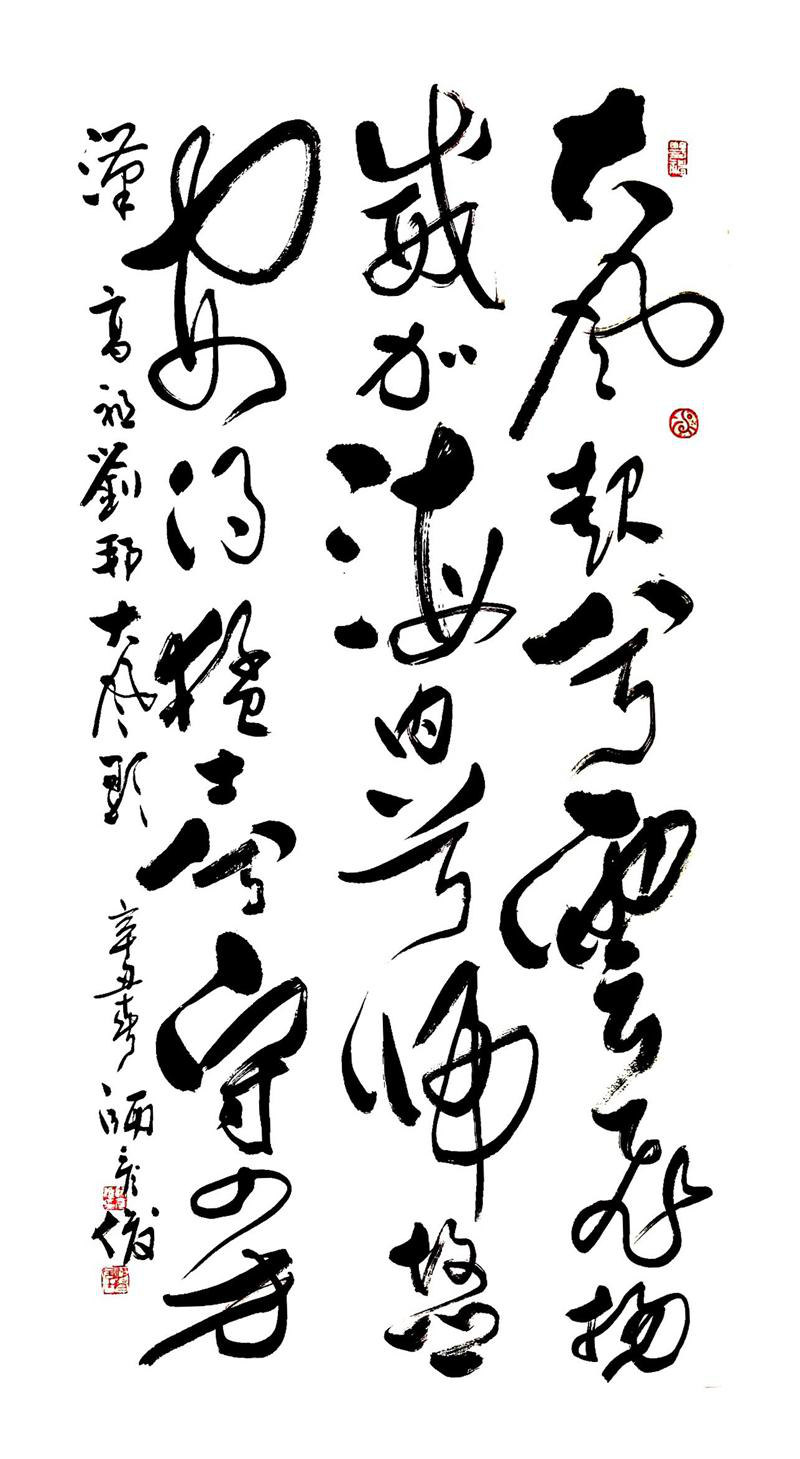 大風起兮雲飛揚
威加海内兮歸故鄉
安得猛士兮守四方
漢高祖劉邦大風歌 辛丑春 師彦俊